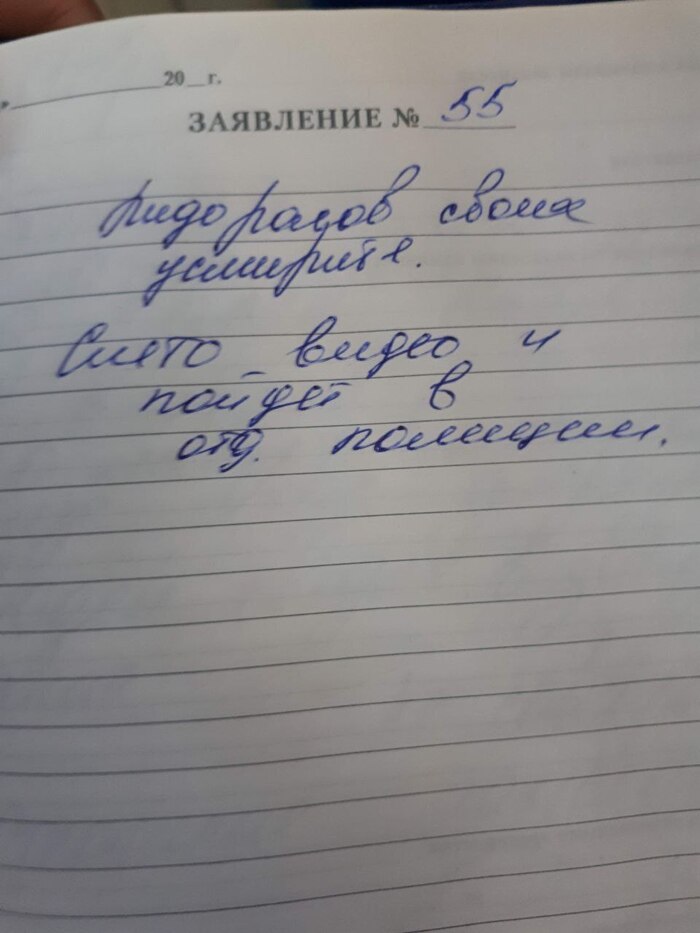 20__г.
ЗАЯВЛЕНИЕ № 55
Пидорасов своих
усмирите.
Снято видео и
пойдет в
отд. полиции.